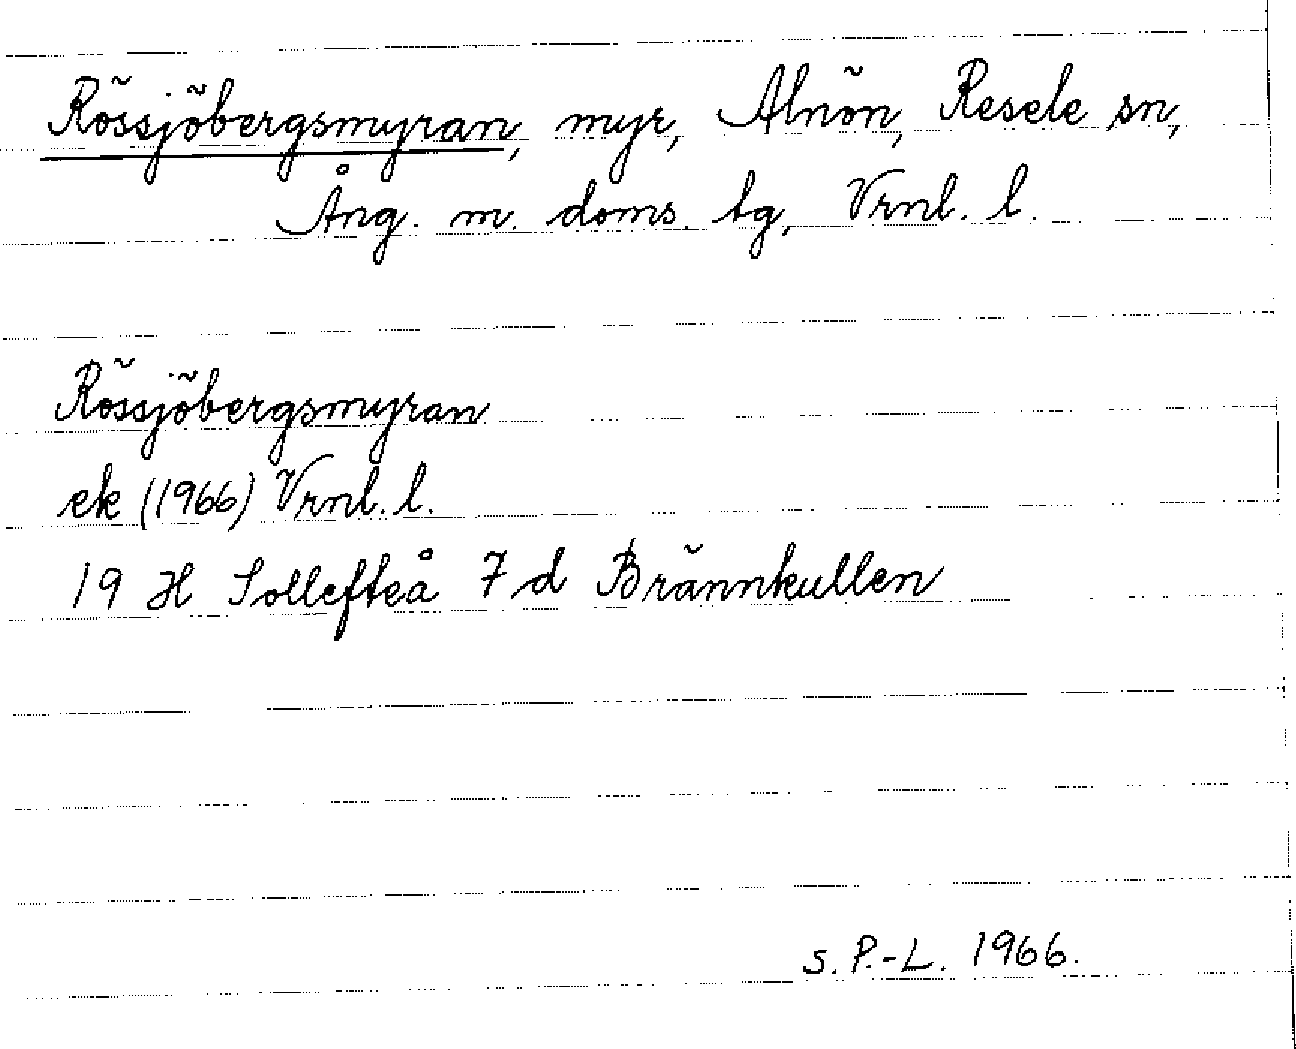 Rössjöbergsmyran, myr, Alnön, Resele sn,
Ång. m. doms. tg, Vrnl. l.
Rössjöbergsmyran
ek (1966) Vrnl. l.
19 H Sollefteå 7 d Brännkullen
s. P.-L. 1966.